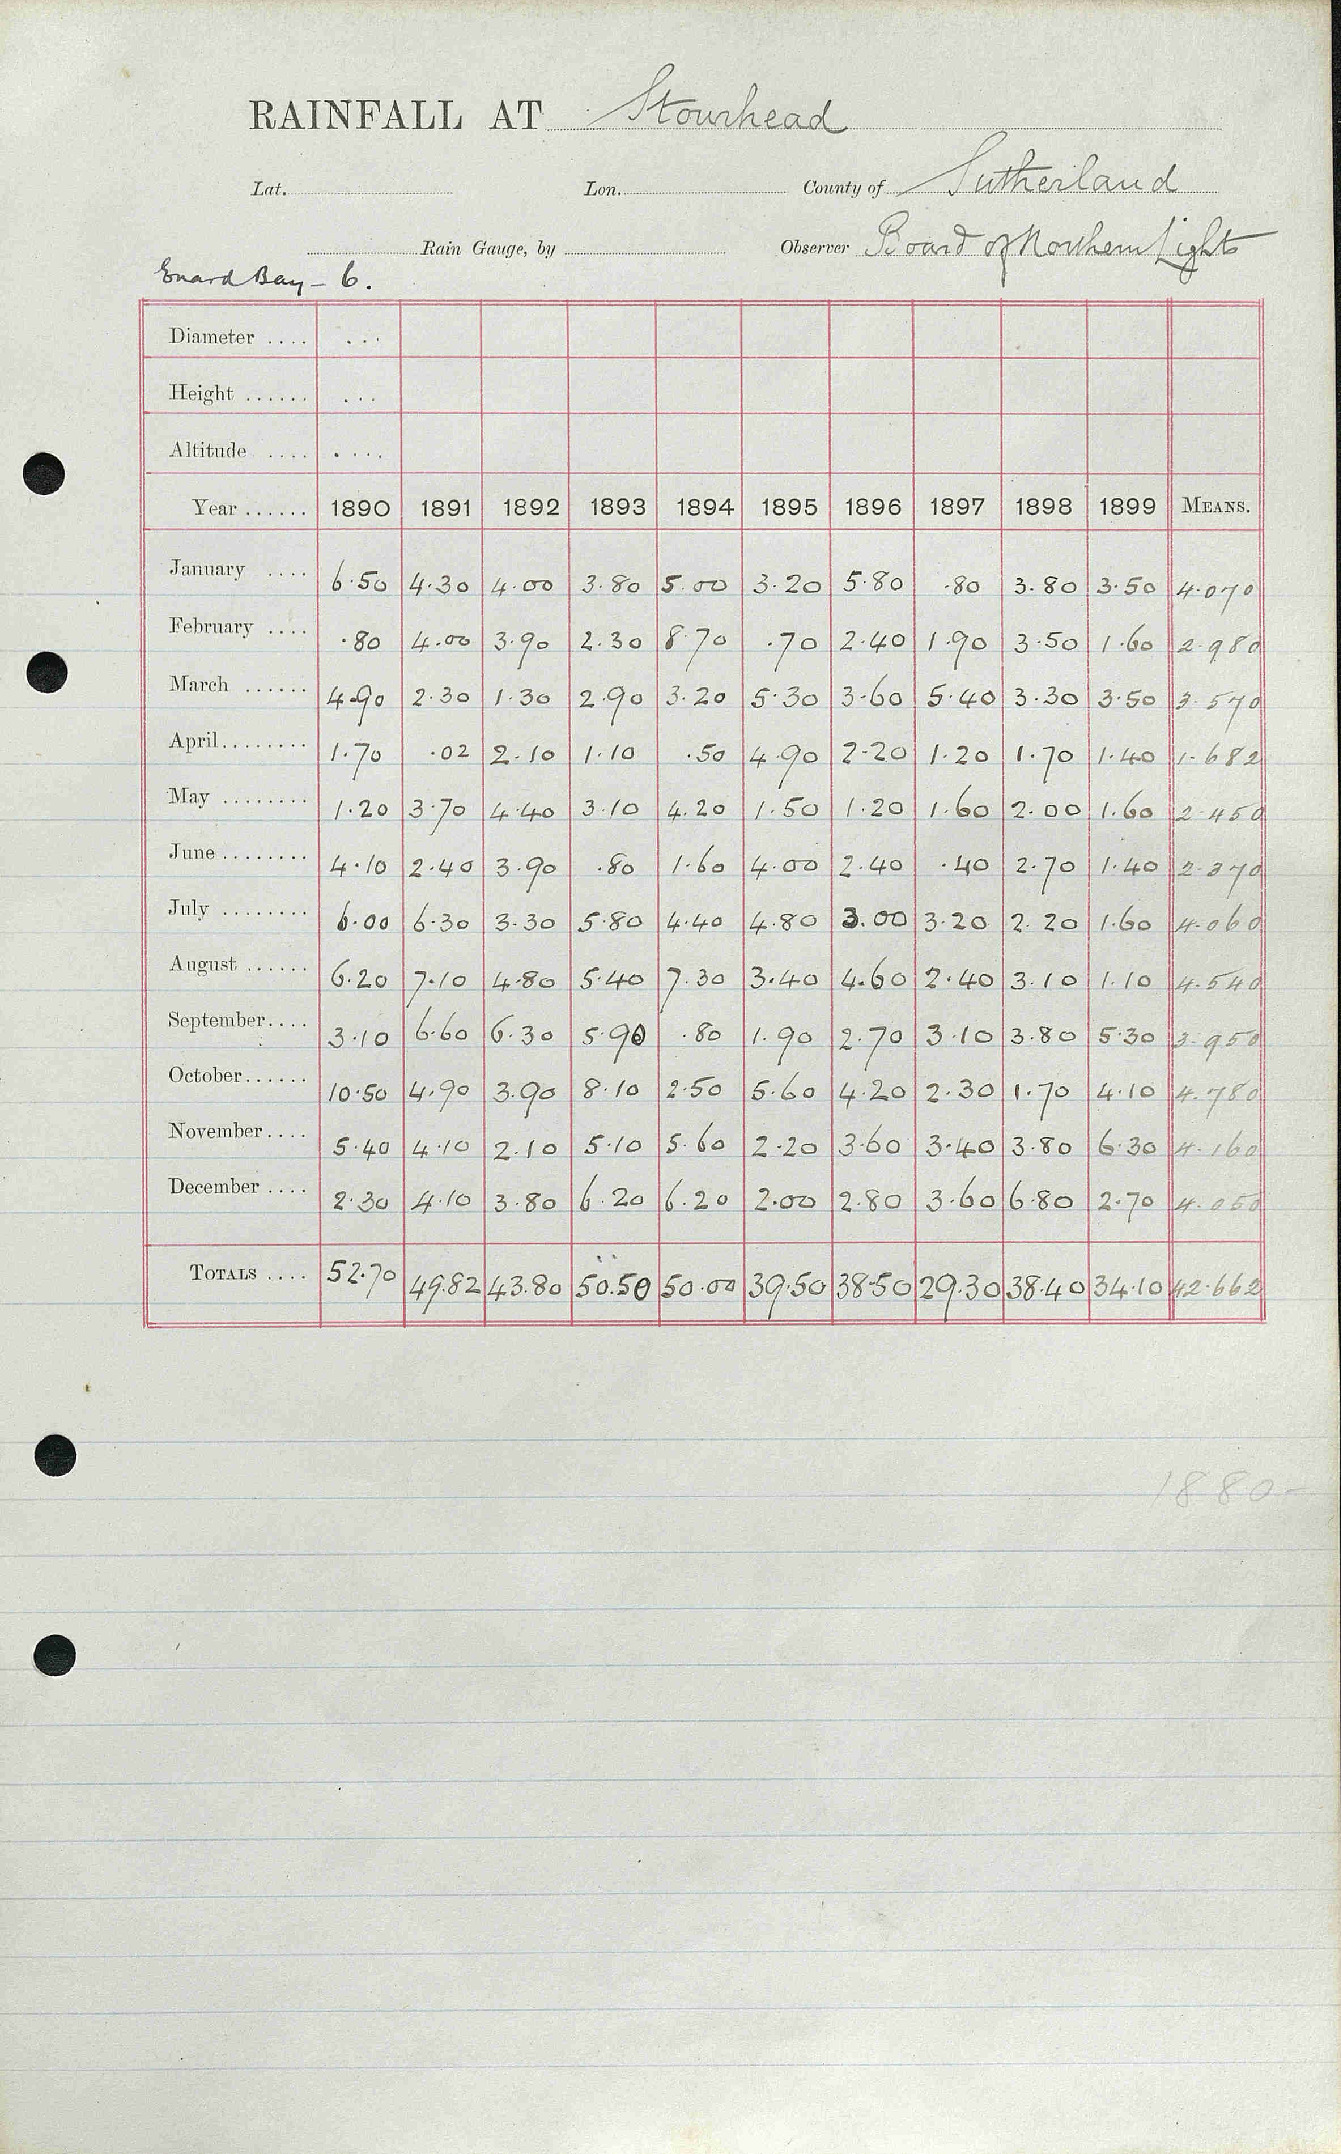 RAINFALL AT Stourhead
Lat. Lon. County of Sutherland
Rain Gauge, by Observer Board of Northern Lights
Enard Bay - 6.
Diameter .... ...
Height ...... ...
Altitude .... ....
Year ...... 1890 1891 1892 1893 1894 1895 1896 1897 1898 1899 MEANS.
January .... 6.50 4.30 4.00 3.80 5.00 3.20 5.80 .80 3.80 3.50 4.070
February .... .80 4.00 3.90 2.30 8.70 .70 2.40 1.90 3.50 1.60 2.980
March ...... 4.90 2.30 1.30 2.90 3.20 5.30 3.60 5.40 3.30 3.50 3.570
April........ 1.70 .02 2.10 1.10 .50 4.90 2.20 1.20 1.70 1.40 1.682
May ........ 1.20 3.70 4.40 3.10 4.20 1.50 1.20 1.60 2.00 1.60 2.450
June ........ 4.10 2.40 3.90 .80 1.60 4.00 2.40 .40 2.70 1.40 2.370
July ........ 6.00 6.30 3.30 5.80 4.40 4.80 3.00 3.20 2.20 1.60 4.060
August ...... 6.20 7.10 4.80 5.40 7.30 3.40 4.60 2.40 3.10 1.10 4.540
September.... 3.10 6.60 6.30 5.90 .80 1.90 2.70 3.10 3.80 5.30 3.950
October...... 10.50 4.90 3.90 8.10 2.50 5.60 4.20 2.30 1.70 4.10 4.780
November.... 5.40 4.10 2.10 5.10 5.60 2.20 3.60 3.40 3.80 6.30 4.160
December .... 2.30 4.10 3.80 6.20 6.20 2.00 2.80 3.60 6.80 2.70 4.050
TOTALS .... 52.70 49.82 43.80 50.50 50.00 39.50 38.50 29.30 38.40 34.10 42.662
1880-